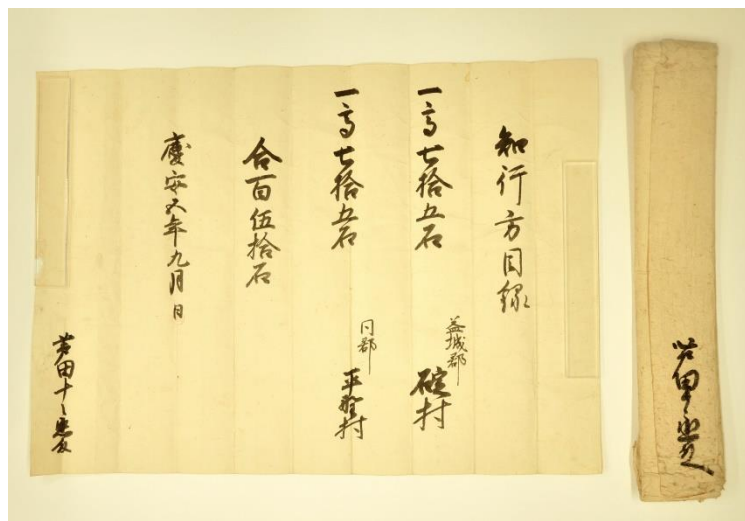 知行方目録
一高七拾五石
益城郡
碇村
一高七拾五石
同郡
平野村
合百伍拾石
慶安五年九月日
芦田十
芦田